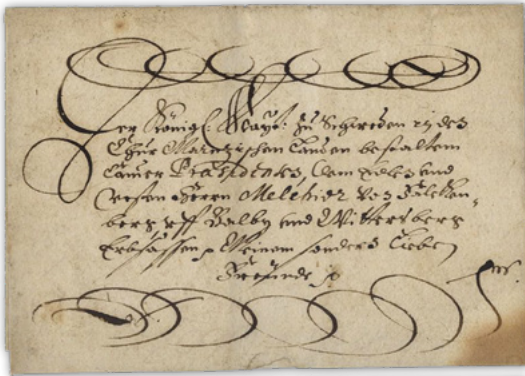 Der Königl: Mayt: zu Schweden in des
Chur Maintzischen Landen bestaltem
Camer Præsidenten, dem Edlen und
Vesten Herrn Melchior von Falcken-
berg uff Balby und Wittersberg
Erbsassen p Meinem sonders Lieben
Freunde p